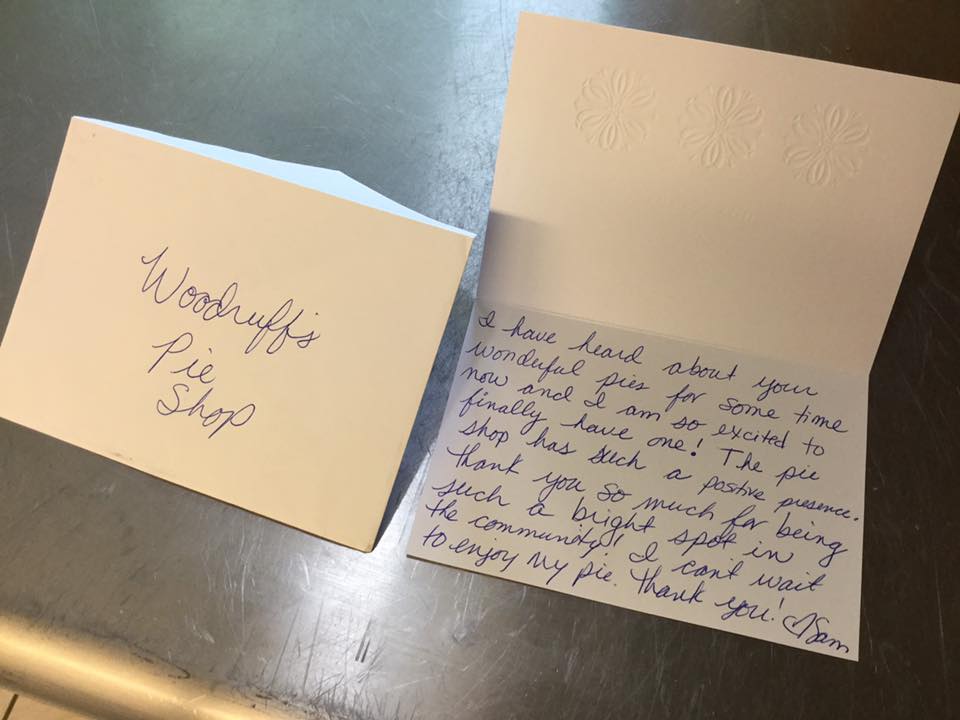 Woodruff's
Pie
Shop
I have heard about your
wonderful pies for some time
now and I am so excited to
finally have one! The pie
shop has such a postive presence.
Thank you so much for being
such a bright spot in
the community! I can't wait
to enjoy my pie. Thank you! ♡Sam